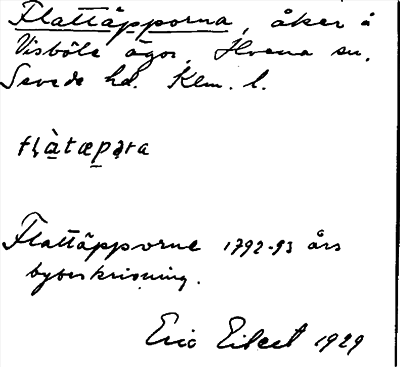 Flattäpporna, åker å
Visböle ägor, Hvena sn.
Sevede hd. Klm. l.
flàtæpəṛa
Flattäpporne 1792-93 års
bybeskrivning.
Eric Elkert 1929